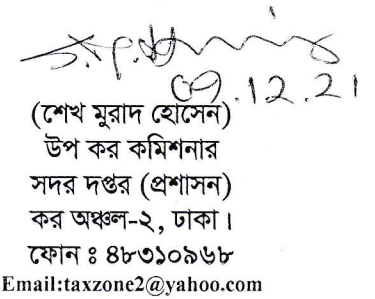 09.12.21
(শেখ মুরাদ হোসেন)
উপ কর কমিশনার
সদর দপ্তর (প্রশাসন)
কর অঞ্চল-২, ঢাকা।
ফোন ঃ ৪৮৩১০৯৬৮
Email:taxzone2@yahoo.com